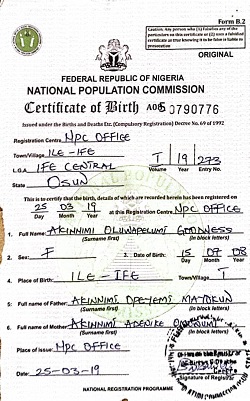 Form B.2
Caution: Any person who (1) falsifies any of the
particulars on this certificate or (2) uses a falsified
certificate as true knowing it to be false is liable to
prosecution
ORIGINAL
FEDERAL REPUBLIC OF NIGERIA
NATIONAL POPULATION COMMISSION
Certificate of Birth A06 0790776
Issued under the Births and Deaths Etc. (Compulsory Registration) Decree No. 69 of 1992
Registration Centre NPC OFFICE
Town/Village ILE-IFE
L.G.A IFE CENTRAL I 19 273
Volume Year Entry No.
State OSUN
This is to certify that the birth, details of which are recorded herein has been registered on
25 03 19 at this Registration Centre NPC OFFICE
Day Month Year
1. Full Name: AKINNIMI OLUWAPELUMI GOODNESS
(Surname first) (In block letters)
2. Sex: F 3. Date of Birth: 15 07 08
Day Month Year
4. Place of Birth: ILE-IFE
Town/Village
5. Full Name of Father: AKINNIMI
(Surname first) (In block letters)
6. Full Name of Mother: AKINNIMI ADENIKE
(Surname first) (In block letters)
Place of issue: NPC OFFICE
Date: 25-03-19
Signature of Registrar
NATIONAL REGISTRATION PROGRAMME